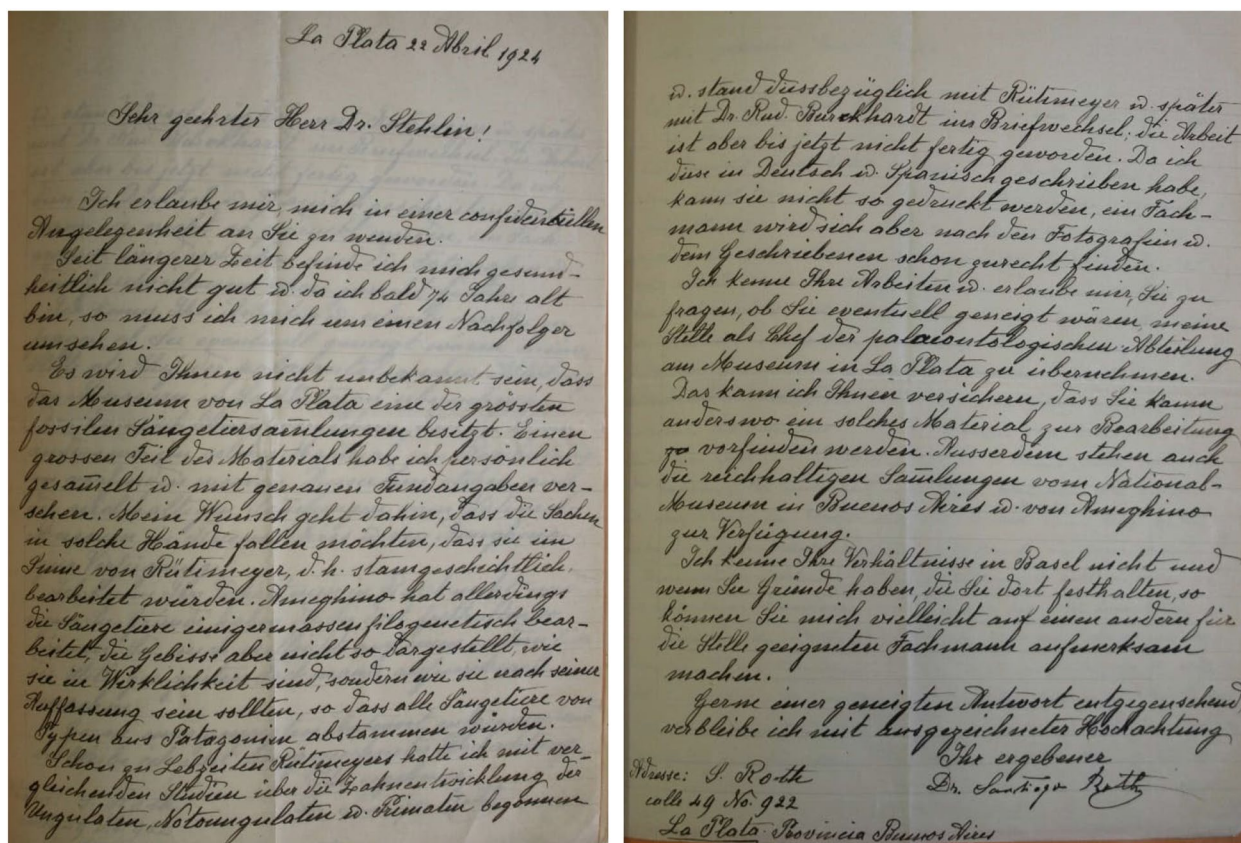 La Plata 22 Abril 1924
Sehr geehrter Herr Dr. Stehlin!
Ich erlaube mir, mich in einer confidentiellen
Angelegenheit an Sie zu wenden.
Seit längerer Zeit befinde ich mich gesund-
heitlich nicht gut u. da ich bald 74 Jahre alt
bin, so muss ich mich um einen Nachfolger
umsehen.
Es wird Ihnen nicht unbekannt sein, dass
das Museum von La Plata eine der grössten
fossilen Säugetiersam̄lungen besitzt. Einen
grossen Teil des Materials habe ich persönlich
gesam̄elt u. mit genauen Fundangaben ver-
sehen. Mein Wunsch geht dahin, dass die Sachen
in solche Hände fallen möchten, dass sie im
Sinne von Rütimeyer, d. h. stamgeschichtlich,
bearbeitet würden. Ameghino hat allerdings
die Säugetiere einigermassen filogenetisch bear-
beitet, die Gebisse aber nicht so dargestellt, wie
sie in Wirklichkeit sind, sondern wie sie nach seiner
Auffassung sein sollten, so dass alle Säugetiere von
Typen aus Patagonien abstammen würden.
Schon zu Lebzeiten Rütimeyers hatte ich mit ver-
gleichenden Studien über die Zahnentwicklung der
Ungulaten, Notoungulaten u. Primaten begonnen
u. stand diessbezüglich mit Rütimeyer u. später
mit Dr. Rud. Burckhardt im Briefwechsel; die Arbeit
ist aber bis jetzt nicht fertig geworden. Da ich
diese in Deutsch u. Spanisch geschrieben habe,
kann sie nicht so gedruckt werden, ein Fach-
mann wird sich aber nach den Fotografien u.
dem Geschriebenen schon zurecht finden.
Ich kenne Ihre Arbeiten u. erlaube mir, Sie zu
fragen, ob Sie eventuell geneigt wären, meine
Stelle als Chef der palaeontologischen Abteilung
am Museum in La Plata zu übernehmen.
Das kann ich Ihnen versichern, dass Sie kaum
anderswo ein solches Material zur Bearbeitung
vorfinden werden. Ausserdem stehen auch
die reichhaltigen Sam̄lungen vom National-
Museum in Buenos Aires u. von Ameghino
zur Verfügung.
Ich kenne Ihre Verhältnisse in Basel nicht und
wenn Sie Gründe haben, die Sie dort festhalten, so
können Sie mich vielleicht auf einen andern für
die Stelle geeigneten Fachmann aufmerksam
machen.
Gerne einer geneigten Antwort entgegensehend
verbleibe ich mit ausgezeichneter Hochachtung
Ihr ergebener
Dr. Santiago Roth
Adresse: S. Roth
calle 49 No. 922
La Plata Provincia Buenos Aires